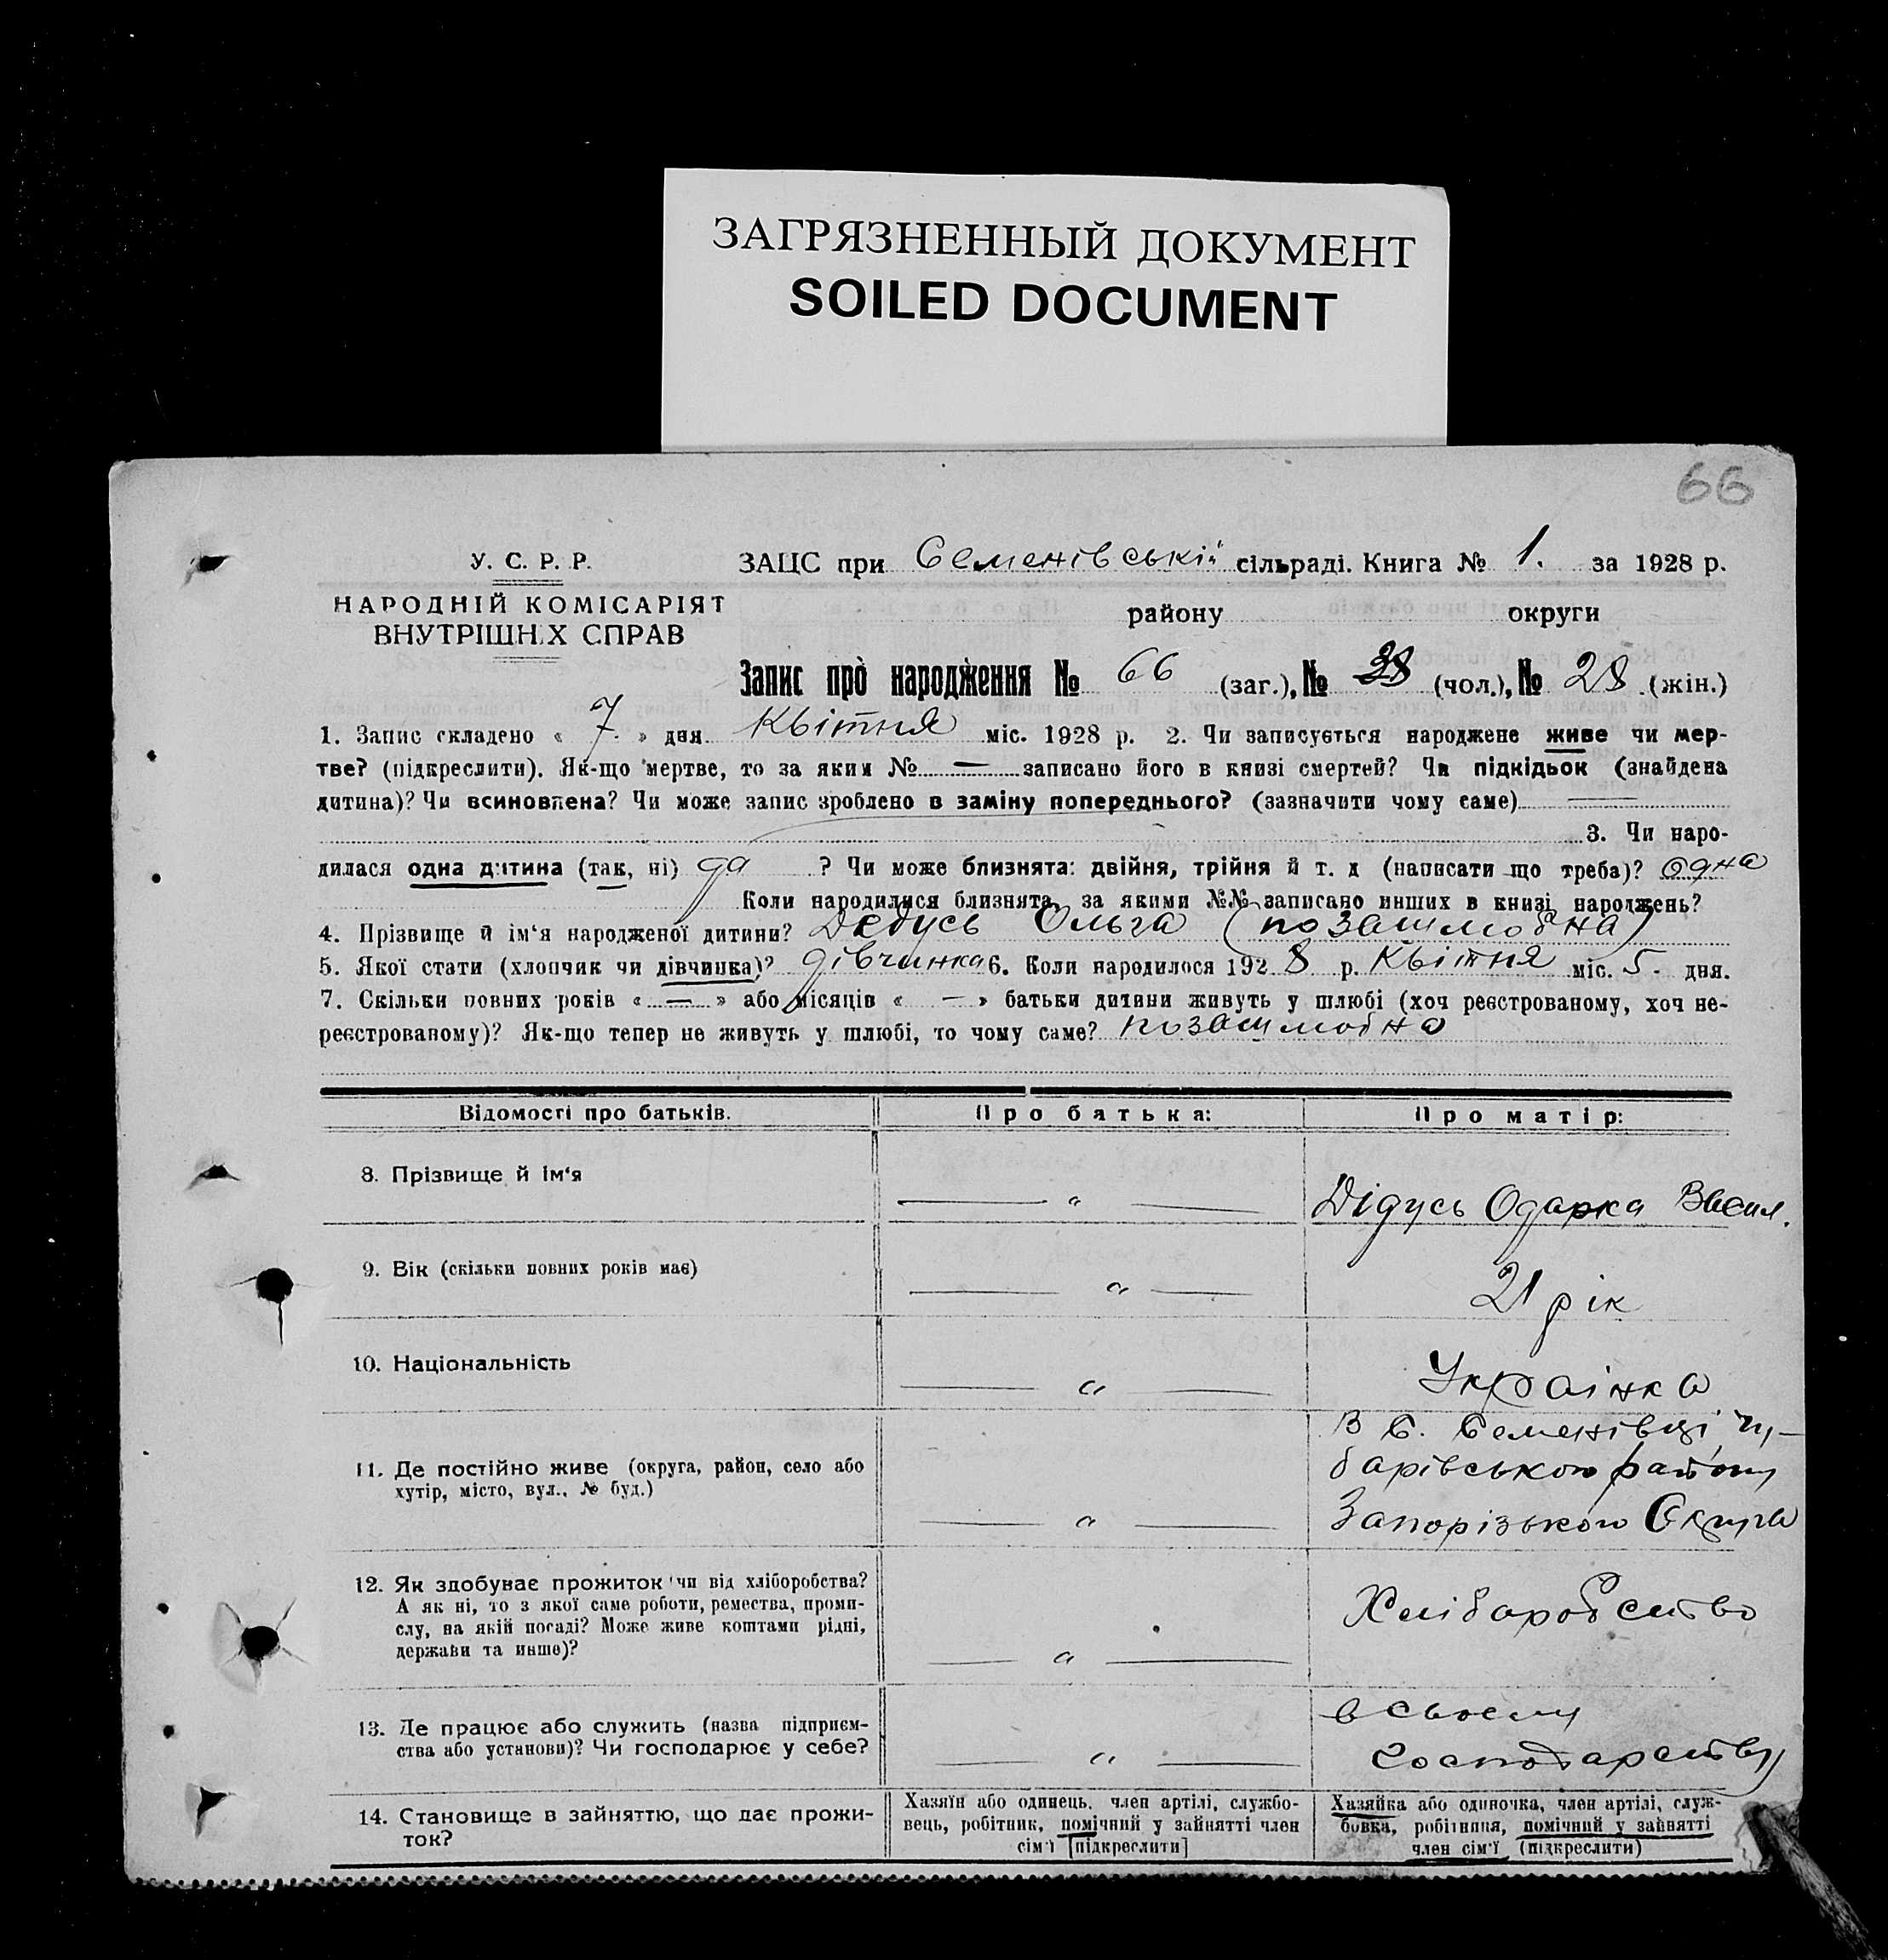 ЗАГРЯЗНЕННЫЙ ДОКУМЕНТ
SOILED DOCUMENT
66
У. С. Р. Р.
НАРОДНІЙ КОМІСАРІЯТ
ВНУТРІШНІХ СПРАВ
ЗАЦС при Семенівській сільраді. Книга № 1. за 1928 р.
району округи
Запис про народження № 66 (заг.), № 38 (чол.), № 28 (жін.)
1. Запис складено « 7 » дня Квітня міс. 1928 р. 2. Чи записується народжене живе чи мер-
тве? (підкреслити). Як-що мертве, то за яким № — записано його в книзі смертей? Чи підкідьок (знайдена
дитина)? Чи всиновлена? Чи може запис зроблено в заміну попереднього? (зазначити чому саме) —
3. Чи наро-
дилася одна дитина (так, ні) да ? Чи може близнята: двійня, трійня й т. д (написати що треба)? одна
Коли народилися близнята, за якими №№ записано инших в книзі народжень?
4. Прізвище й ім‘я народженої дитини? Дедусь Ольга (позашлюбна)
5. Якої стати (хлопчик чи дівчинка)? дівчинка 6. Коли народилося 1928 р. Квітня міс. 5 - дня.
7. Скільки повних років « — » або місяців « — » батьки дитини живуть у шлюбі (хоч реєстрованому, хоч не-
реєстрованому)? Як-що тепер не живуть у шлюбі, то чому саме? позашлюбна
Відомості про батьків. Про батька: Про матір:
8. Прізвище й ім‘я — " — Дідусь Одарка Васил.
9. Вік (скільки повних років має) — " — 21 рік
10. Національність — " — Українка
11. Де постійно живе (округа, район, село або
хутір, місто, вул., № буд.) — " —
В С. Семенівці, Чу-
барівського району
Запорізького Округа
12. Як здобуває прожиток чи від хліборобства?
А як ні, то з якої саме роботи, ремества, проми-
слу, на якій посаді? Може живе коштами рідні,
держави та инше)? — " —
Хліборобство
13. Де працює або служить (назва підприєм-
ства або установи)? Чи господарює у себе? — " —
в своему
господарстві
14. Становище в зайняттю, що дає прожи-
ток?
Хазяїн або одинець, член артілі, службо-
вець, робітник, помічний у зайнятті член
сім‘ї [підкреслити]
Хазяйка або одиночка, член артілі, служ-
бовка, робітниця, помічний у зайнятті
член сім‘ї (підкреслити)